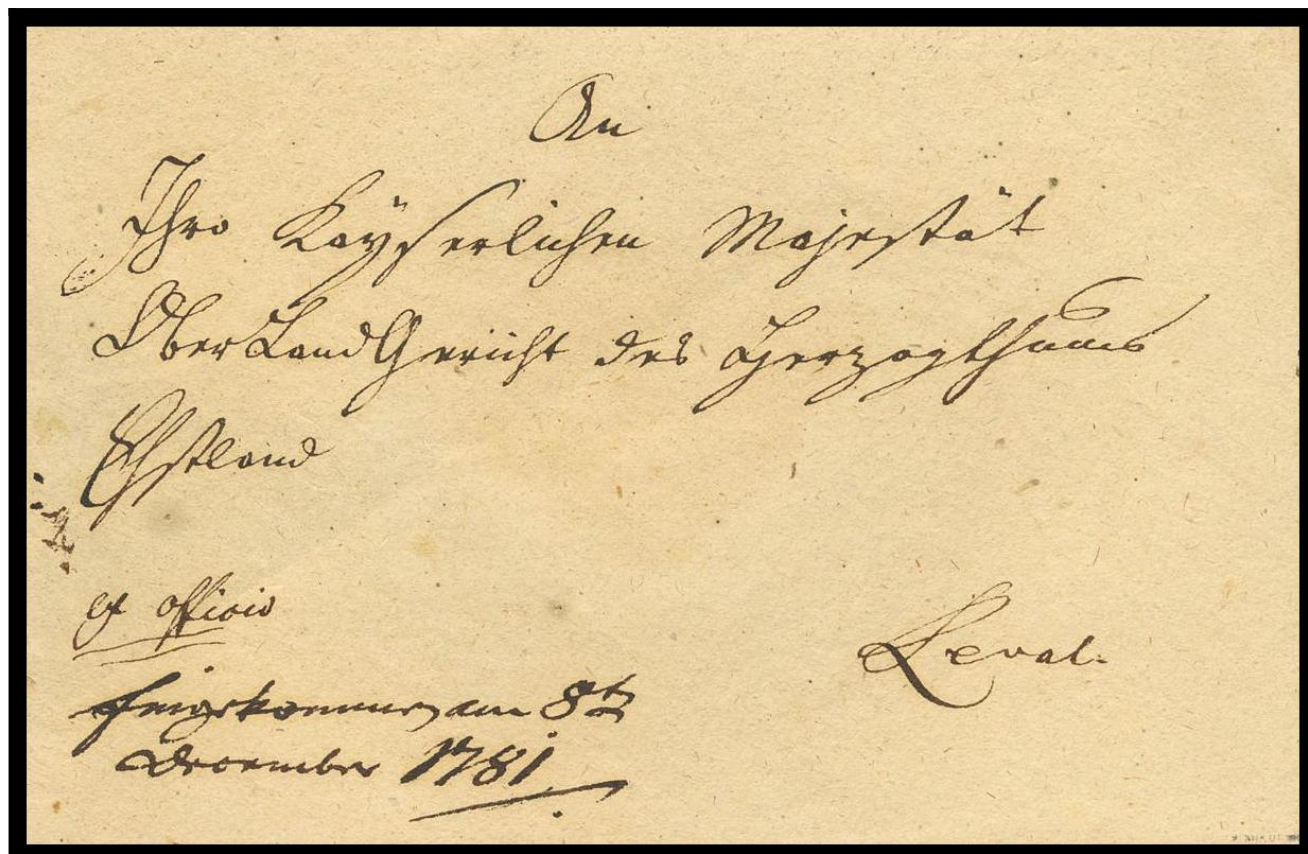 An
Ihro Kayserlichen Majestät
OberLandGericht des Herzogthums
Ehstland
ex officio
Reval.
Eingekommen am 8t
December 1781